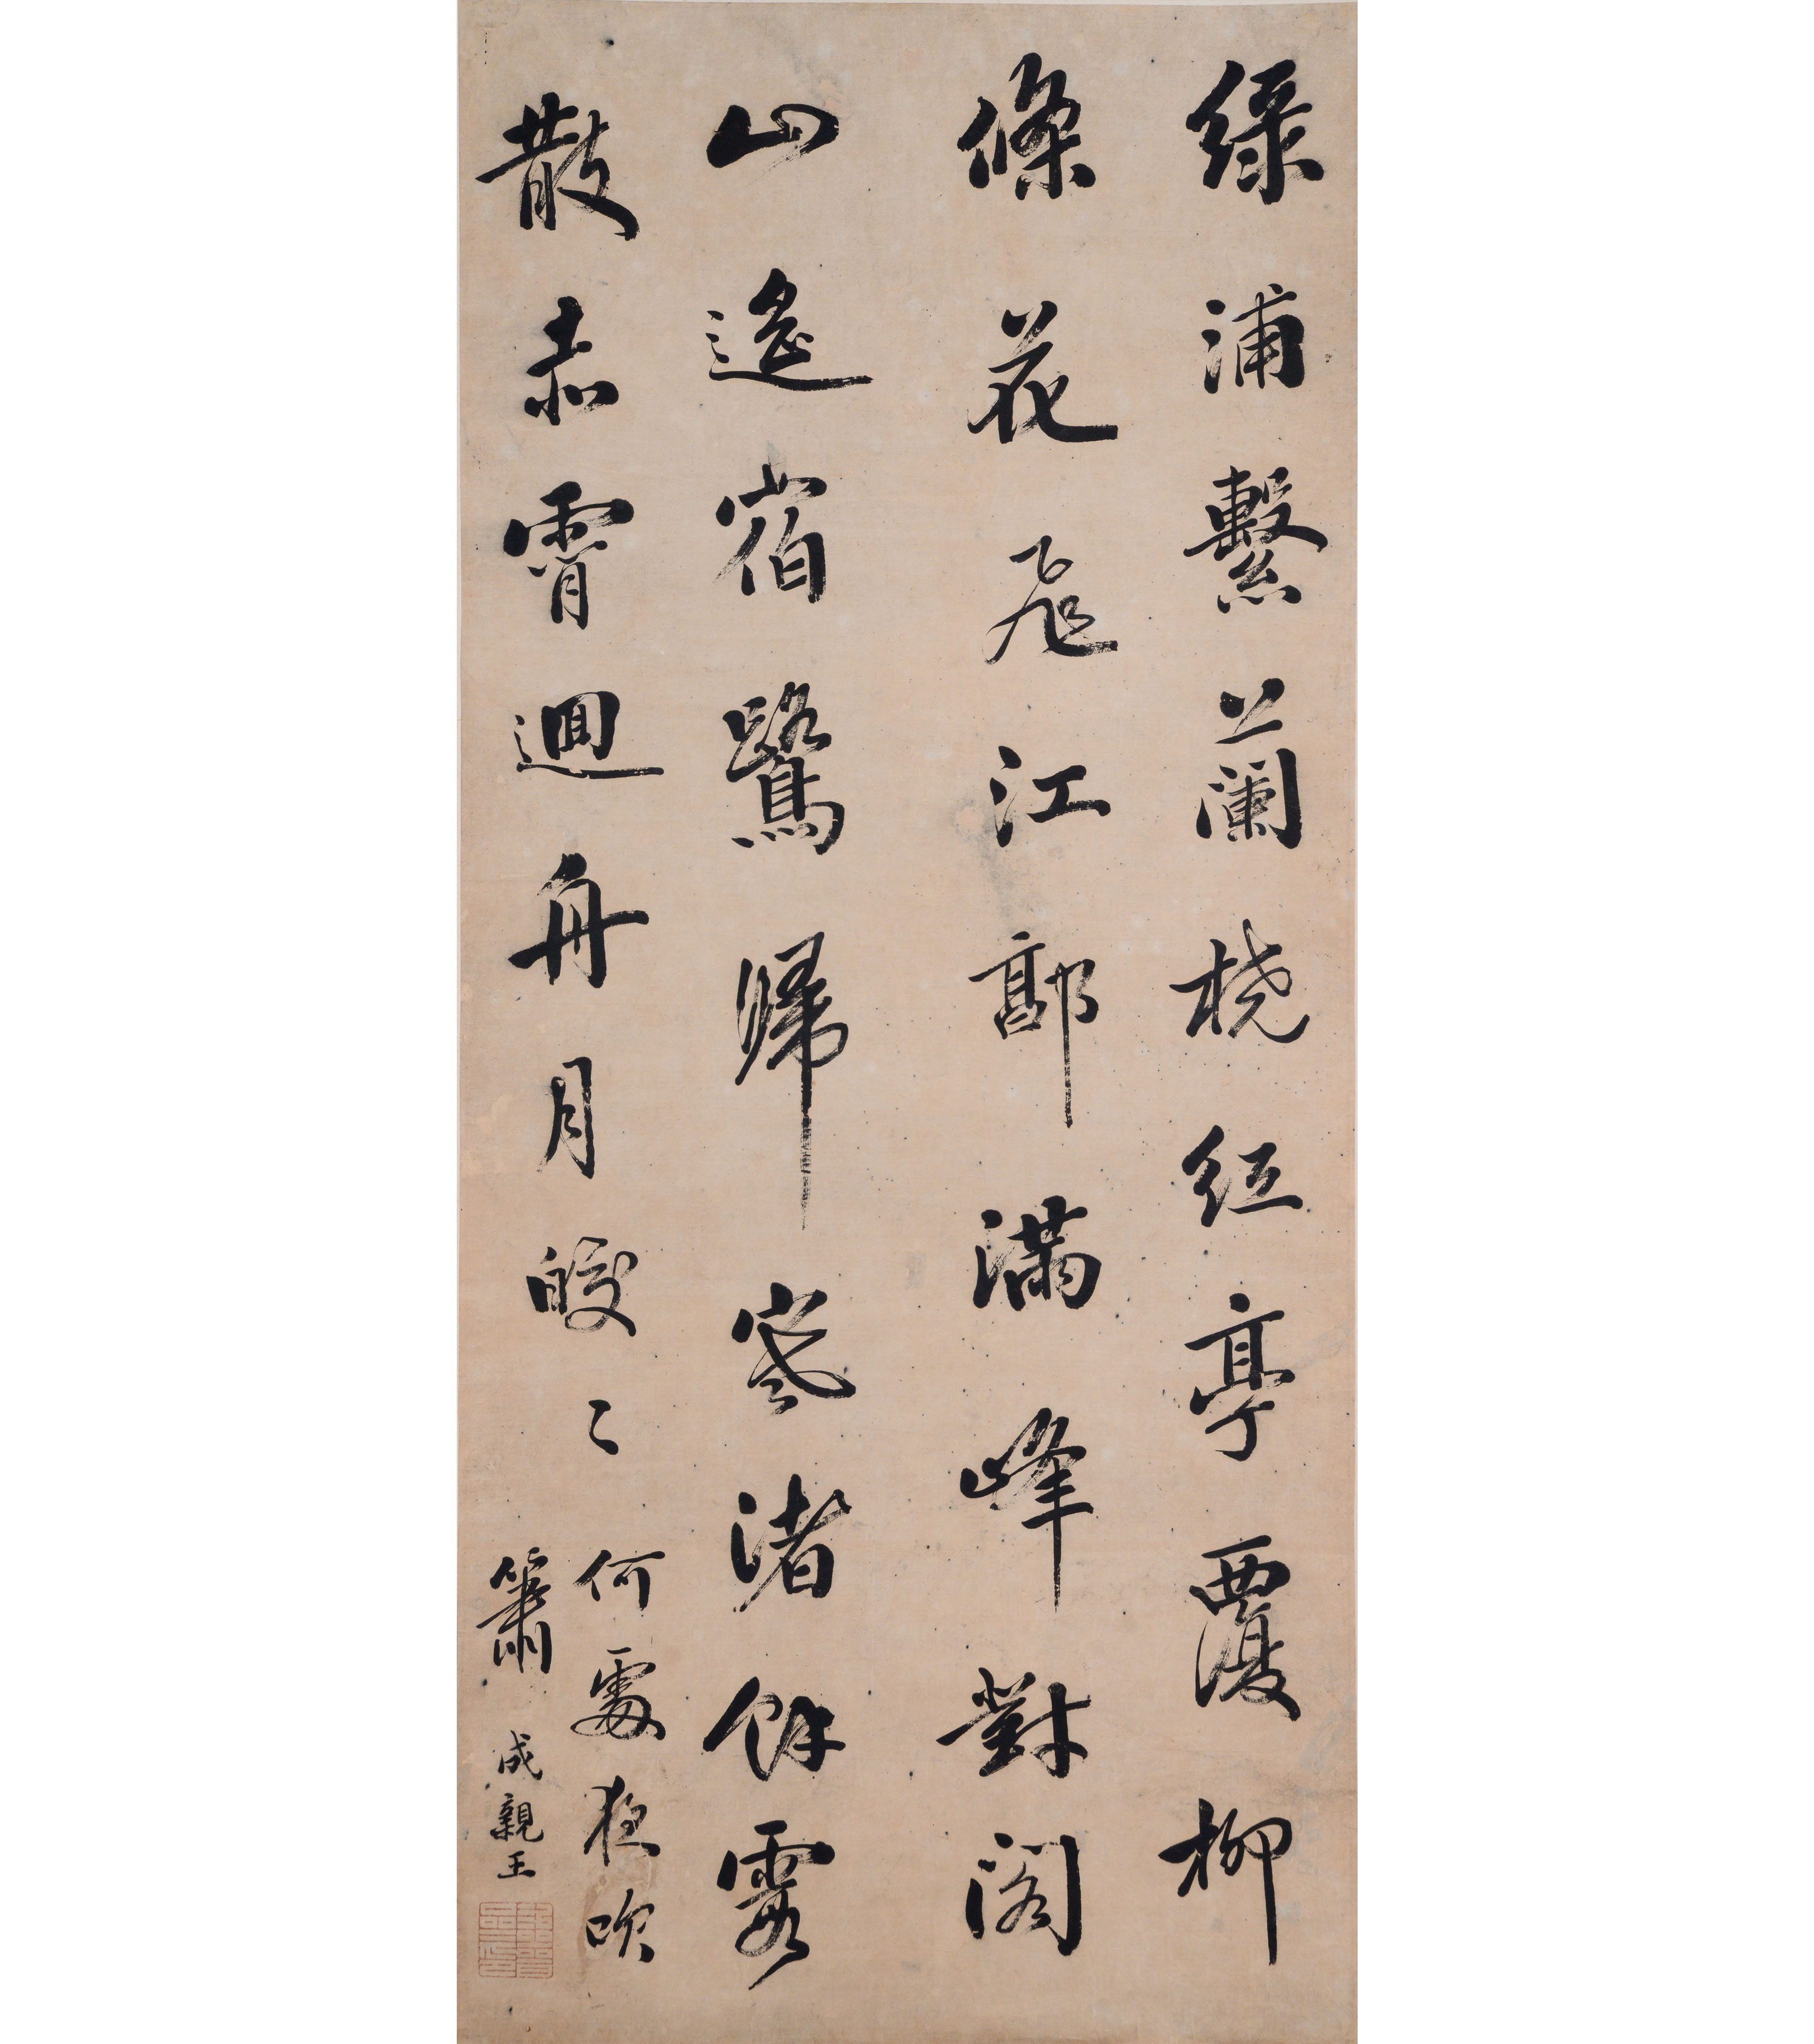 綠浦繫蘭橈紅亭覆柳
條花飛江郭滿峰對閣
山遙宿鷺歸寒渚餘霞
散赤霄迴舟月皎〻
何處夜吹
簫
成親王